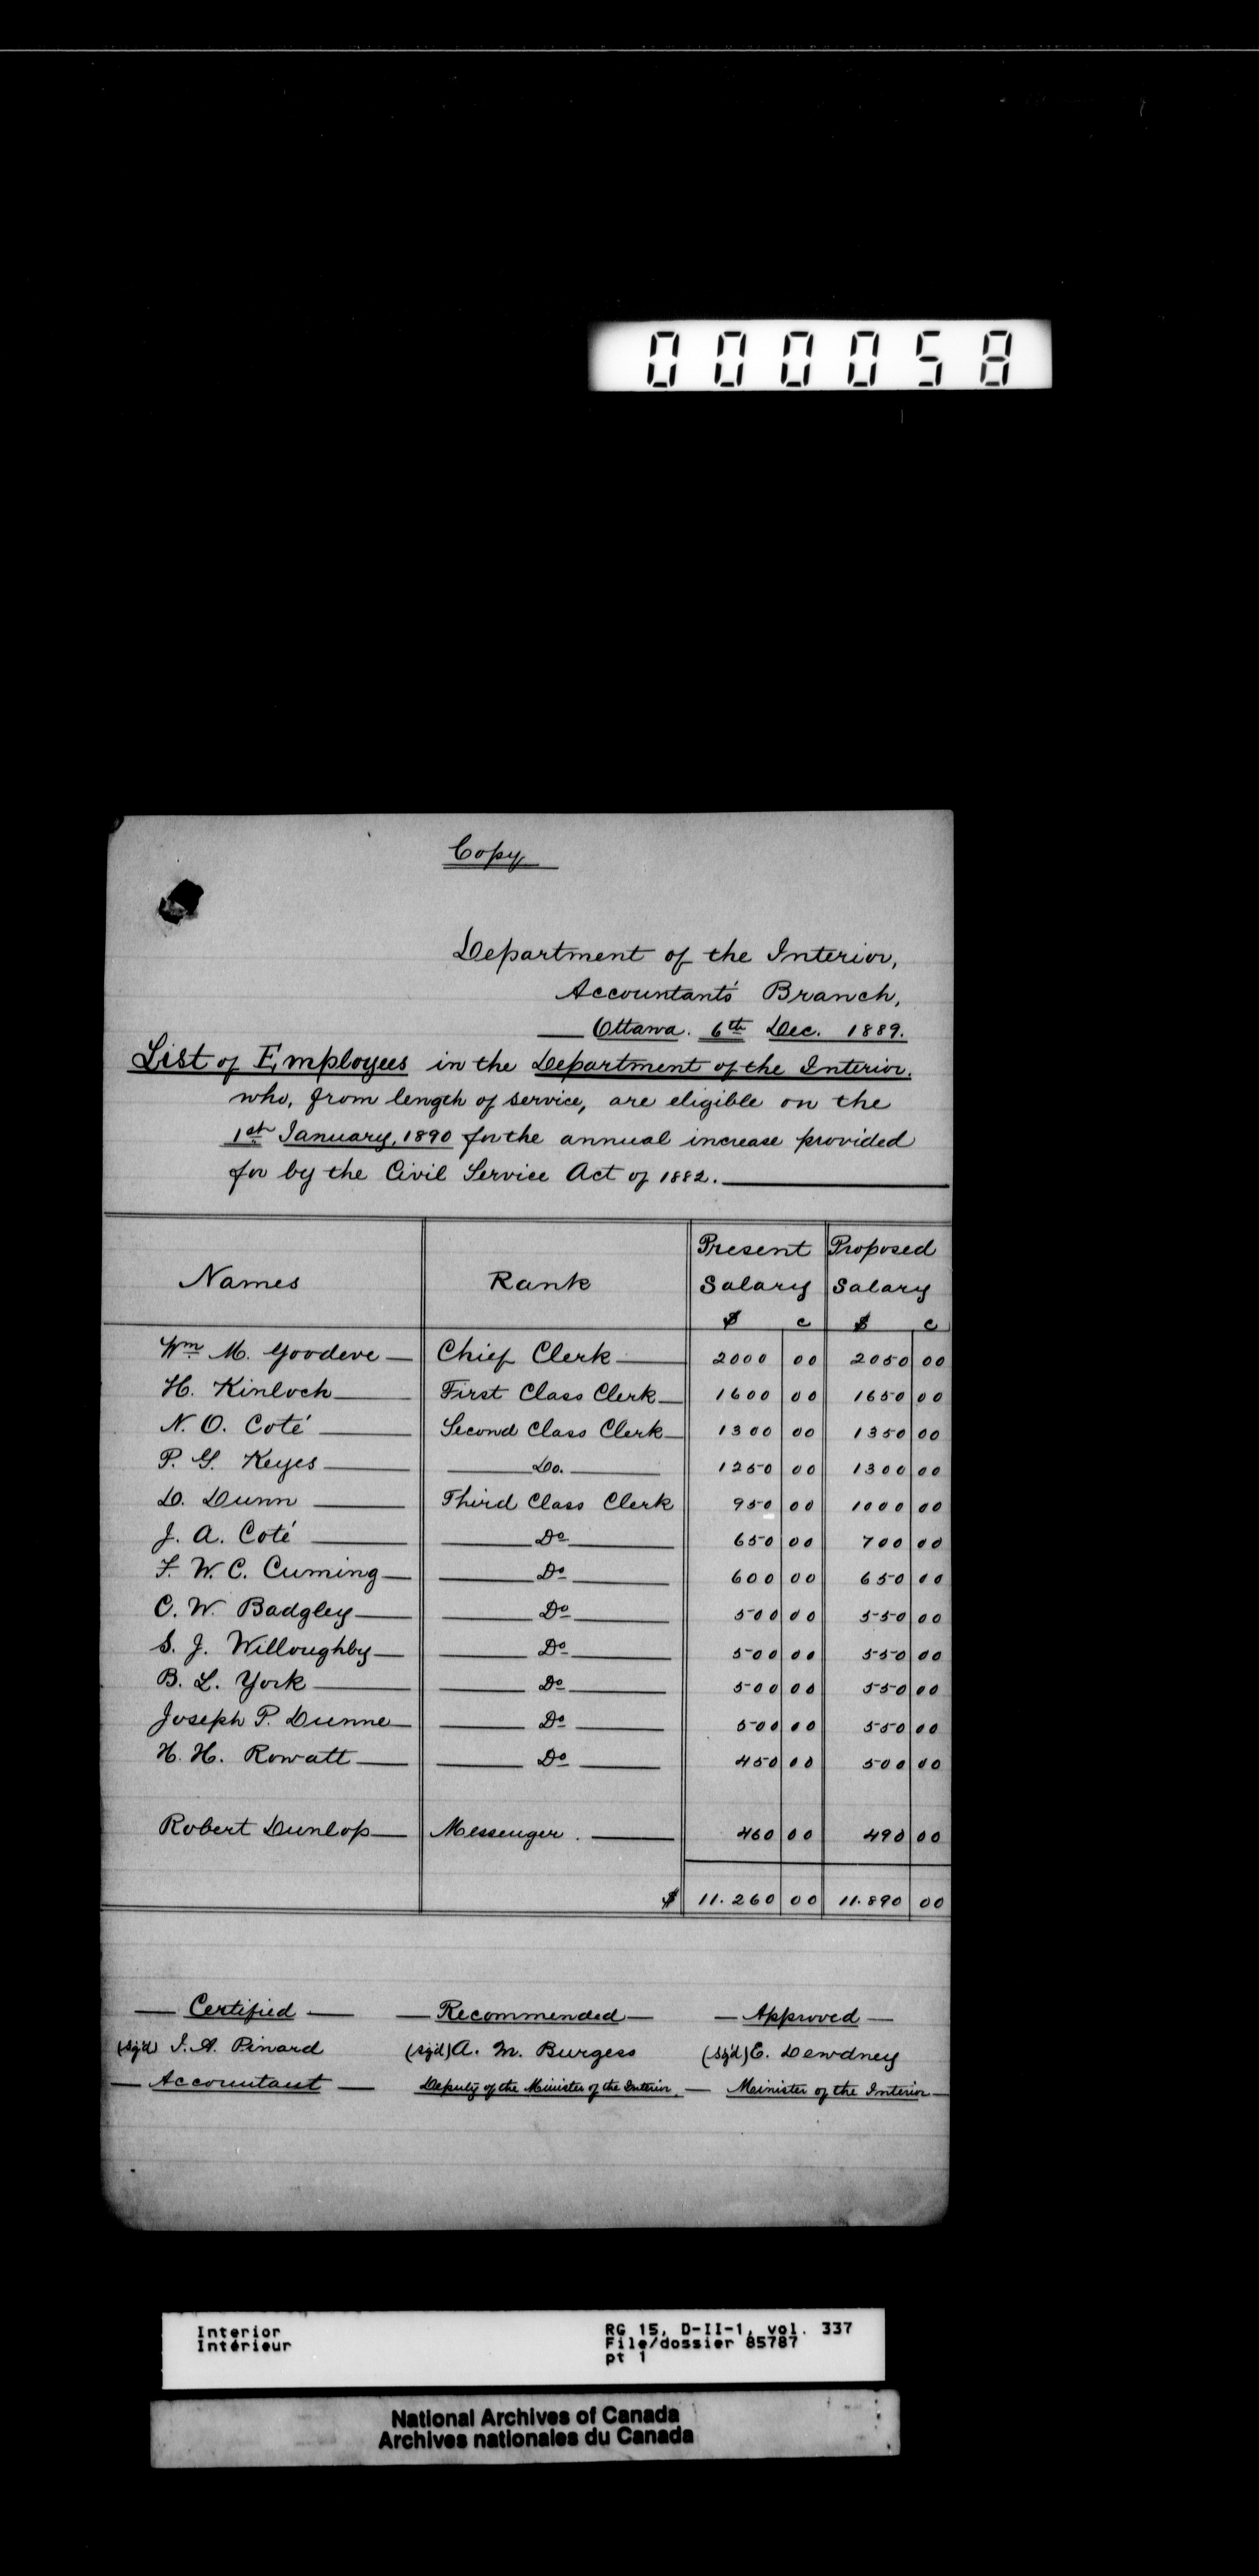 000058
Copy
Department of the Interior,
Accountant's Branch,
Ottawa. 6th Dec. 1889.
List of Employees in the Department of the Interior.
who, from length of service, are eligible on the
1st January, 1890 for the annual increase provided
for by the Civil Service Act of 1882.
Names Rank Present Salary $ c Proposed Salary $ c
Wm M. Goodeve Chief Clerk 2000 00 2050 00
H. Kinloch First Class Clerk 1600 00 1650 00
N. O. Coté Second Class Clerk 1300 00 1350 00
P. G. Keyes Do. 1250 00 1300 00
D. Dunn Third Class Clerk 950 00 1000 00
J. A. Coté Do 650 00 700 00
F. W. C. Cuming Do 600 00 650 00
C. W. Badgley Do 500 00 550 00
S. J. Willoughby Do 500 00 550 00
B. L. York Do 500 00 550 00
Joseph P. Dunne Do 500 00 550 00
H. H. Rowatt Do 450 00 500 00
Robert Dunlop Messenger. 460 00 490 00
$ 11.260 00 11.890 00
Certified Recommended Approved
(sg'd) J. A. Pinard (sg'd) A. M. Burgess (sg'd) E. Dewdney
Accountant Deputy of the Minister of the Interior. Minister of the Interior
Interior RG 15, D-II-1, vol. 337
Intérieur File/dossier 85787
pt 1
National Archives of Canada
Archives nationales du Canada